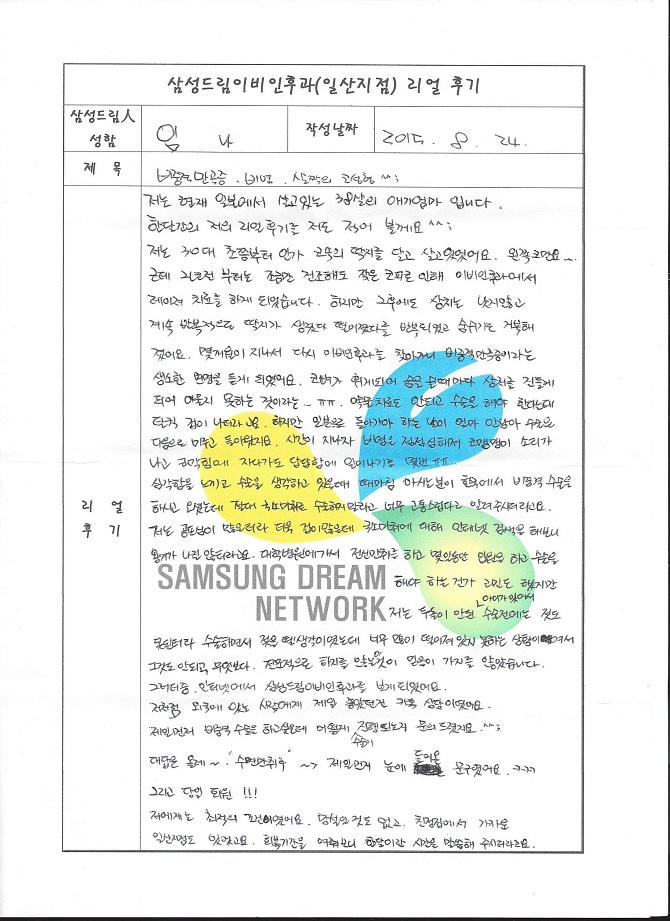 삼성드림이비인후과(일산지점) 리얼 후기
삼성드림人 성함 임 나 작성날짜 2015. 8. 24.
제 목 비중격만곡증. 비염. 살짝의 코성형 ^^;
리 얼 후 기
저는 현재 일본에서 살고있는 38살의 애기엄마 입니다.
한달간의 저의 리얼후기를 저도 적어 볼게요 ^^;
저는 30대 초쯤부터 인가 코속의 딱지를 달고 살고있었어요. 왼쪽코만요~.
근데 2년전 부터는 조금만 건조해도 잦은 코피로 인해 이비인후과에서
레이저 치료를 하게 되었습니다. 하지만 그후에도 상처는 낫지않고
계속 반복적으로 딱지가 생겼다 떨어졌다를 반복되었고 숨쉬기도 거북해
졌어요. 몇개월이 지나서 다시 이비인후과를 찾아가니 비중격만곡증이라는
생소한 병명을 듣게 되었어요. 코뼈가 휘게되어 숨을 쉴때마다 상처를 건들게
되어 아물지 못하는 것이라는.. ㅠㅠ. 약물치료도 안되고 수술을 해야 한다는데
덜컥 겁이 나더라고요. 하지만 일본으로 돌아가야 하는 날이 얼마 안남아 수술은
다음으로 미루고 돌아왔지요. 시간이 지나자 비염은 점점심해져서 코맹맹이 소리가
나고 코막힘에 자다가도 답답함에 일어나기를 몇번 ㅠㅠ..
심각함을 느끼고 수술을 생각하고 있을때 때마침 아시는분이 한국에서 비중격 수술을
하시고 오셨는데 절대 국소마취로 수술하지 말라고 너무 고통스럽다고 알려주시더라고요.
저는 겁도많이 많은터라 더욱 겁이많은데 국소마취에 대해 인터넷 검색을 해보니
용기가 나질 않더라고요. 대학병원에가서 전신마취를 하고 몇일동안 입원을 하고 수술을
해야 하는 건가 고민도 했지만
아이가 있어서
저는 두돌이 안된 수술전에는 젖도
못뗀터라 수술하면서 젖을 뗄생각이였는데 너무 많이 떨어져 있지 못하는 상황이여서
그것도 안되고, 무엇보다. 전문적으로 하지를 않는것이 믿음이 가지를 않았습니다.
그러던중, 인터넷에서 삼성드림이비인후과를 보게되었어요.
저처럼 외국에 있는 사람에게 제일 좋았던건 카톡 상담이였어요.
제일먼저 비중격 수술은 하고싶은데 어떻게 수술이 진행되는지 문의드렸지요. ^^;
대답은 올레~ "수면마취후" ~> 제일먼저 눈에 들어온 문구였어요. ㅋㅋㅋ
그리고 당일 퇴원 !!!
저에게는 최적의 조건이였어요. 망설일것도 없고. 친정집에서 가까운
일산지점도 있었고요. 회복기간을 여쭤보니 한달이란 시간을 말씀해 주시더라고요.
SAMSUNG DREAM
NETWORK